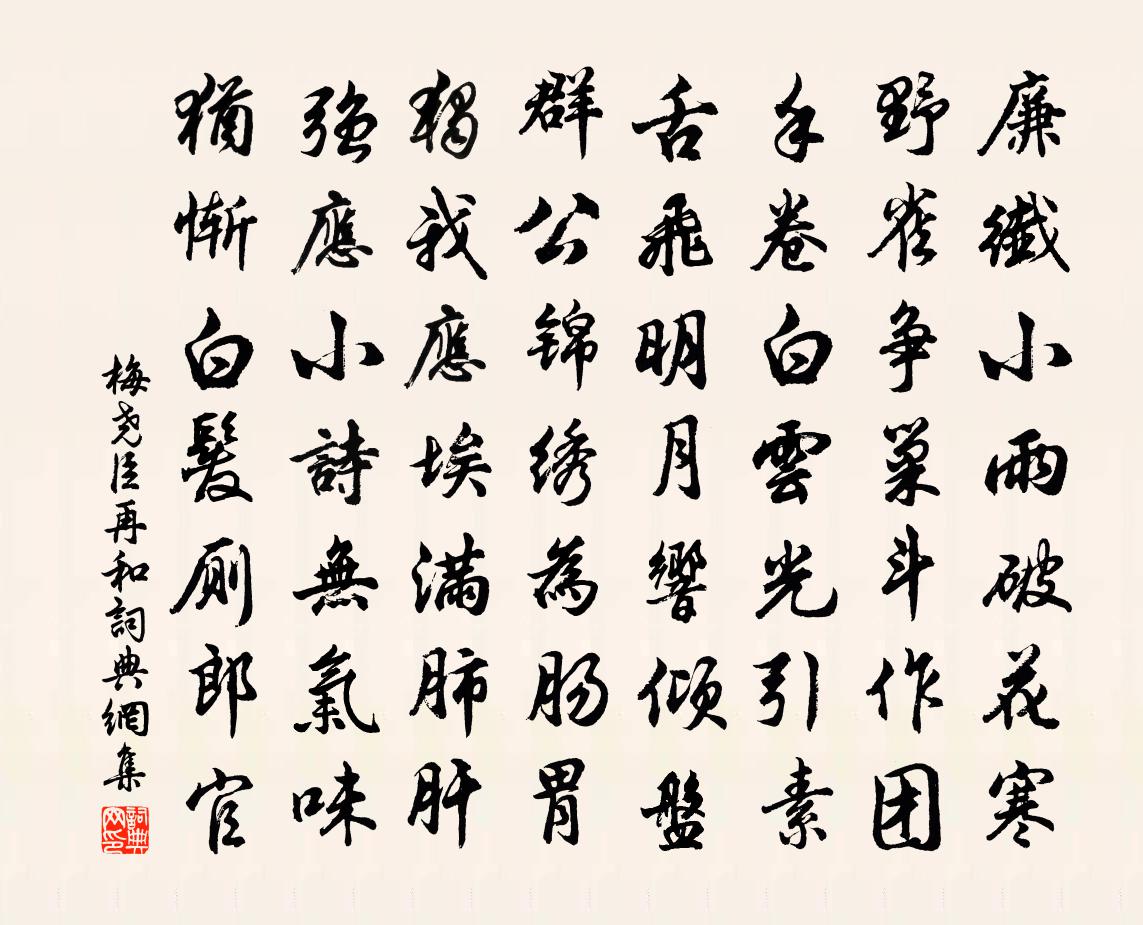 廉纖小雨破花寒
野雀争巢斗作团
手卷白雲光引素
舌飛明月響傾盤
群公锦绣為肠胃
獨我應埃滿肺肝
強應小詩無氣味
猶慚白髮廁郎官
梅尧臣再和詞典網集
詞典网印